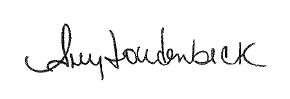 Amy Loudenbeck